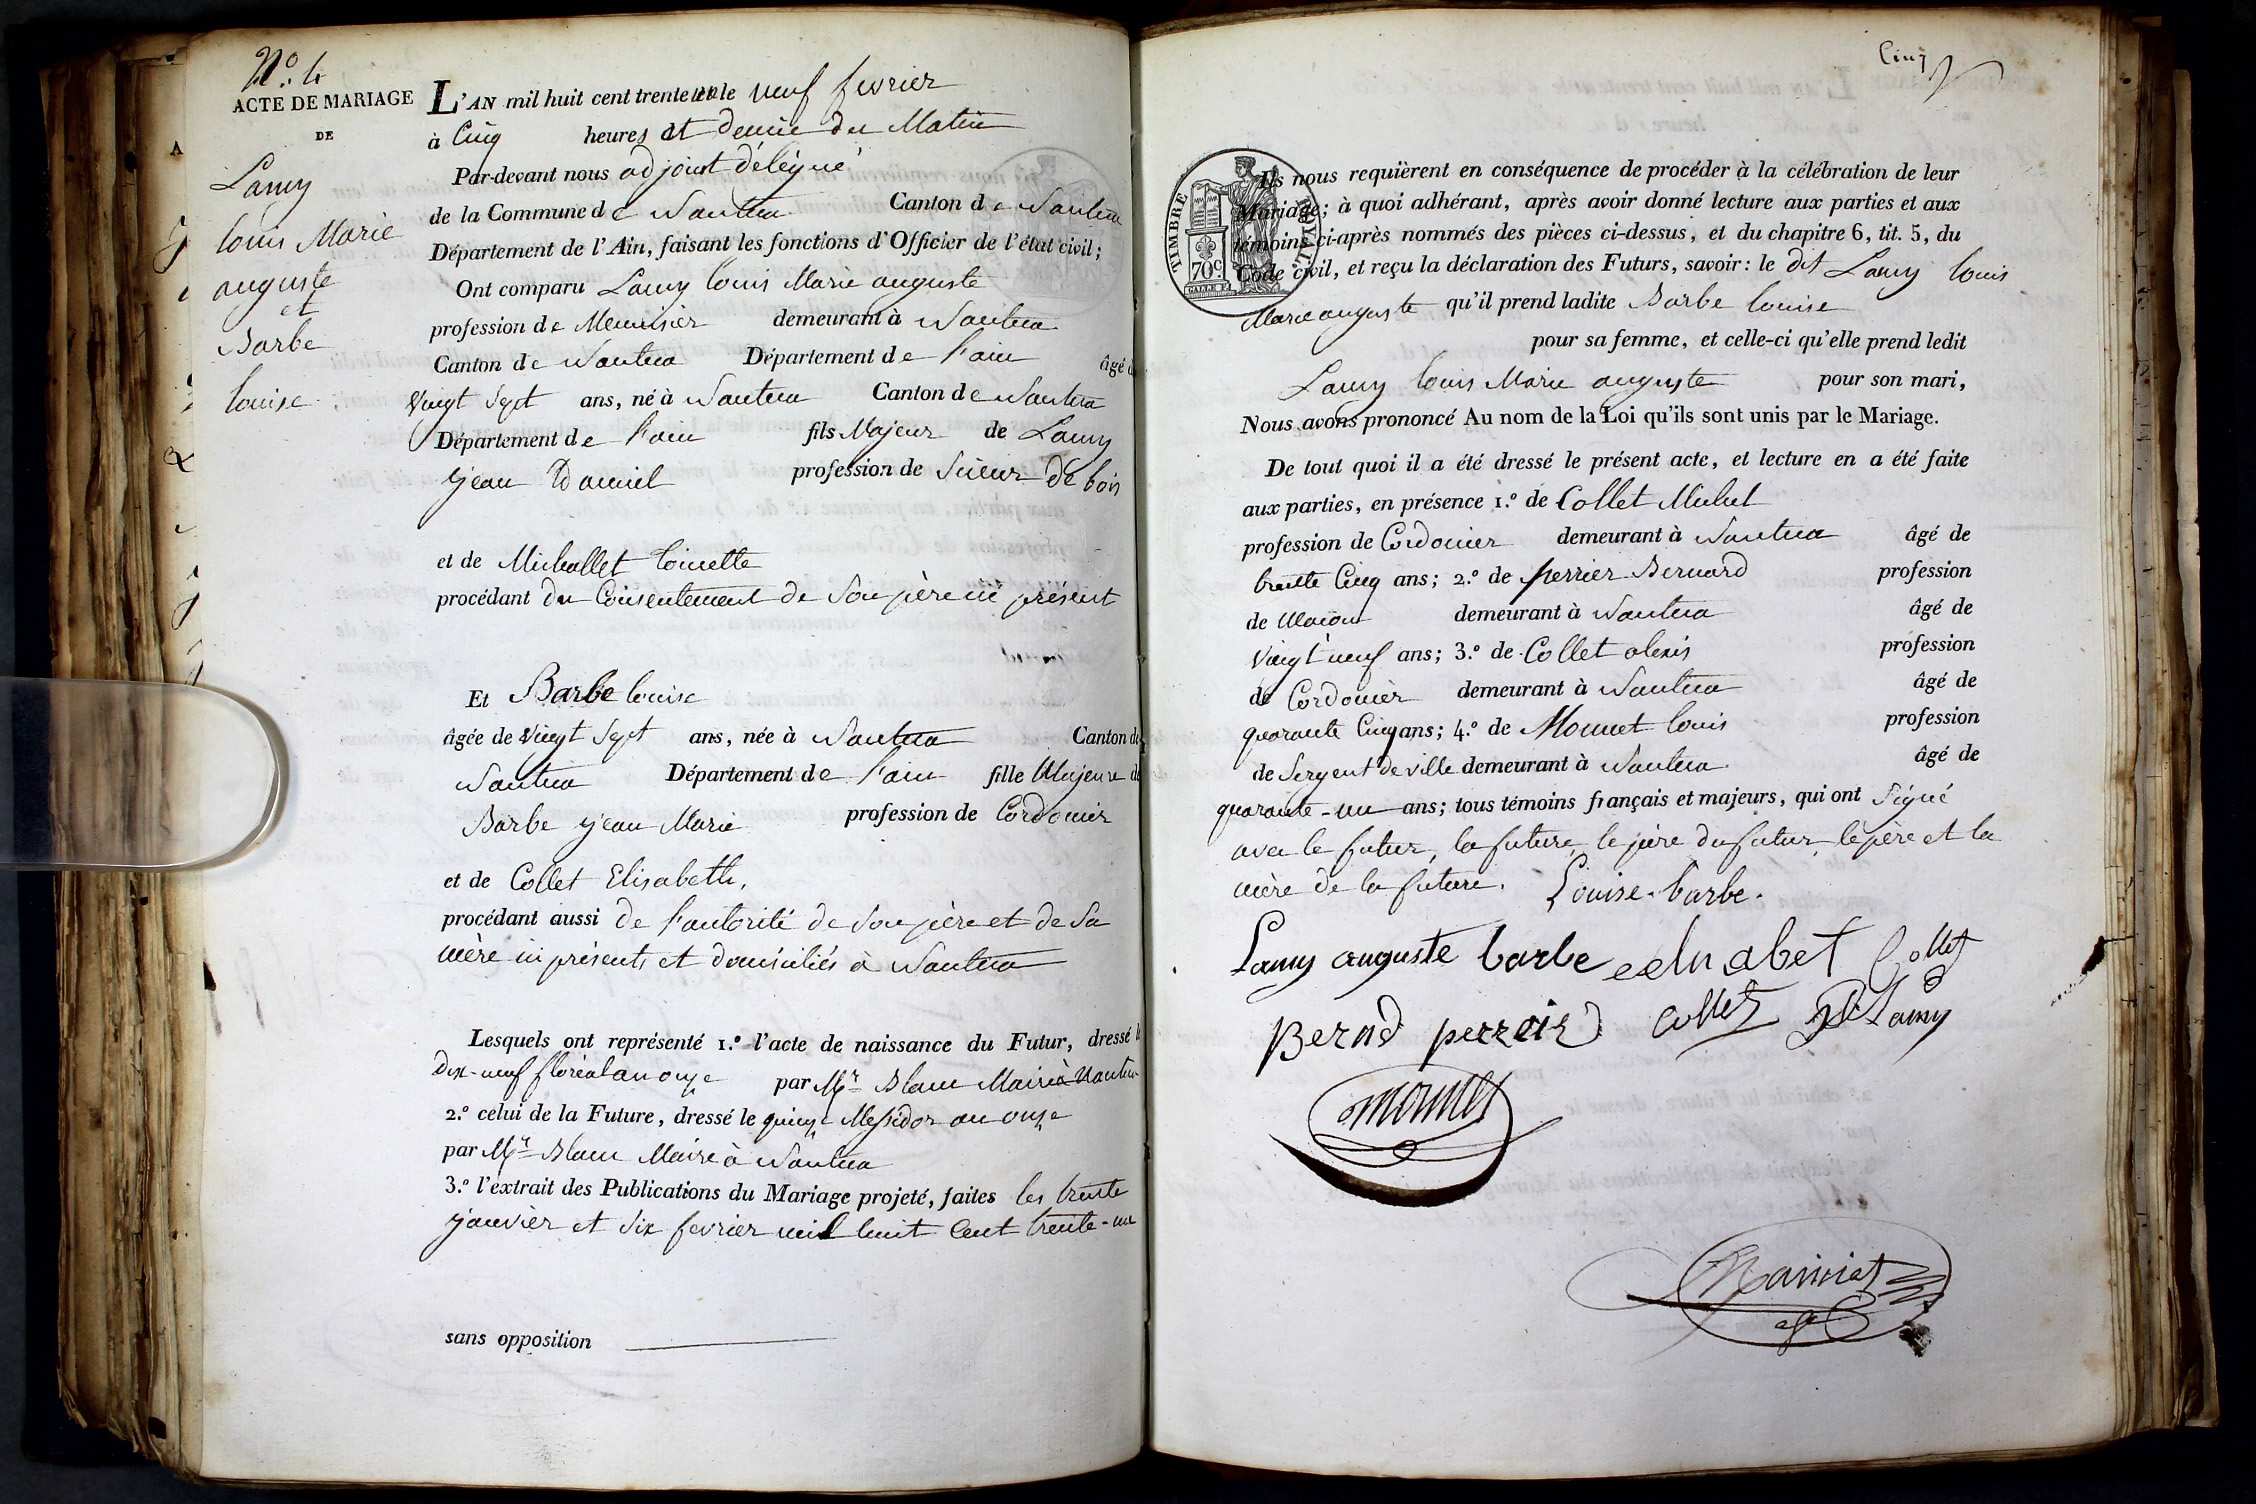 N.º 4
ACTE DE MARIAGE
DE
Lamy
louis Marie
auguste
et
Barbe
louise
L'AN mil huit cent trente un le neuf fevrier
à Cinq heures et demie du Matin
Par-devant nous adjoint délégué
de la Commune de Nantua Canton de Nantua
Département de l'Ain, faisant les fonctions d'Officier de l'état civil;
Ont comparu Lamy louis Marie auguste
profession de Menuisier demeurant à Nantua
Canton de Nantua Département de l'ain âgé d
Vingt Sept ans, né à Nantua Canton de Nantua
Département de l'ain fils Majeur de Lamy
jean Daniel profession de Scieur de bois
et de Michallet loinette
procédant du Consentement de Son père ici présent
Et Barbe louise
âgée de Vingt Sept ans, née à Nantua Canton de
Nantua Département de l'ain fille Majeure de
Barbe jean Marie profession de Cordonier
et de Collet Elisabeth,
procédant aussi de l'autorité de Son père et de Sa
mère ici présents et domiciliés à Nantua
Lesquels ont représenté 1.º l'acte de naissance du Futur, dressé l
Dix-neuf floréal an onze par Mr Blanc Maire à Nantua
2.º celui de la Future, dressé le quinze Messidor an onze
par Mr Blanc Maire à Nantua
3.º l'extrait des Publications du Mariage projeté, faites les trente
janvier et Six fevrier mil huit Cent trente-un
sans opposition
Cinq
TIMBRE ROYAL
70c
Ils nous requièrent en conséquence de procéder à la célébration de leur
Mariage; à quoi adhérant, après avoir donné lecture aux parties et aux
témoins ci-après nommés des pièces ci-dessus, et du chapitre 6, tit. 5, du
Code civil, et reçu la déclaration des Futurs, savoir: le dit Lamy louis
Marie auguste qu'il prend ladite Barbe louise
pour sa femme, et celle-ci qu'elle prend ledit
Lamy louis Marie auguste pour son mari,
Nous avons prononcé Au nom de la Loi qu'ils sont unis par le Mariage.
De tout quoi il a été dressé le présent acte, et lecture en a été faite
aux parties, en présence 1.º de Collet Michel
profession de Cordonier demeurant à Nantua âgé de
trente Cinq ans; 2.º de perrier Bernard profession
de Maçon demeurant à Nantua âgé de
Vingt neuf ans; 3.º de Collet alexis profession
de Cordonier demeurant à Nantua âgé de
quarante Cinq ans; 4.º de Monnet louis profession
de Sergent de ville demeurant à Nantua âgé de
quarante-un ans; tous témoins français et majeurs, qui ont Signé
avec le futur, la future, le père du futur, le père et la
mère de la future. Louise barbe.
Lamy auguste barbe Collet
Bernd perreir Collet Lamy
monnet